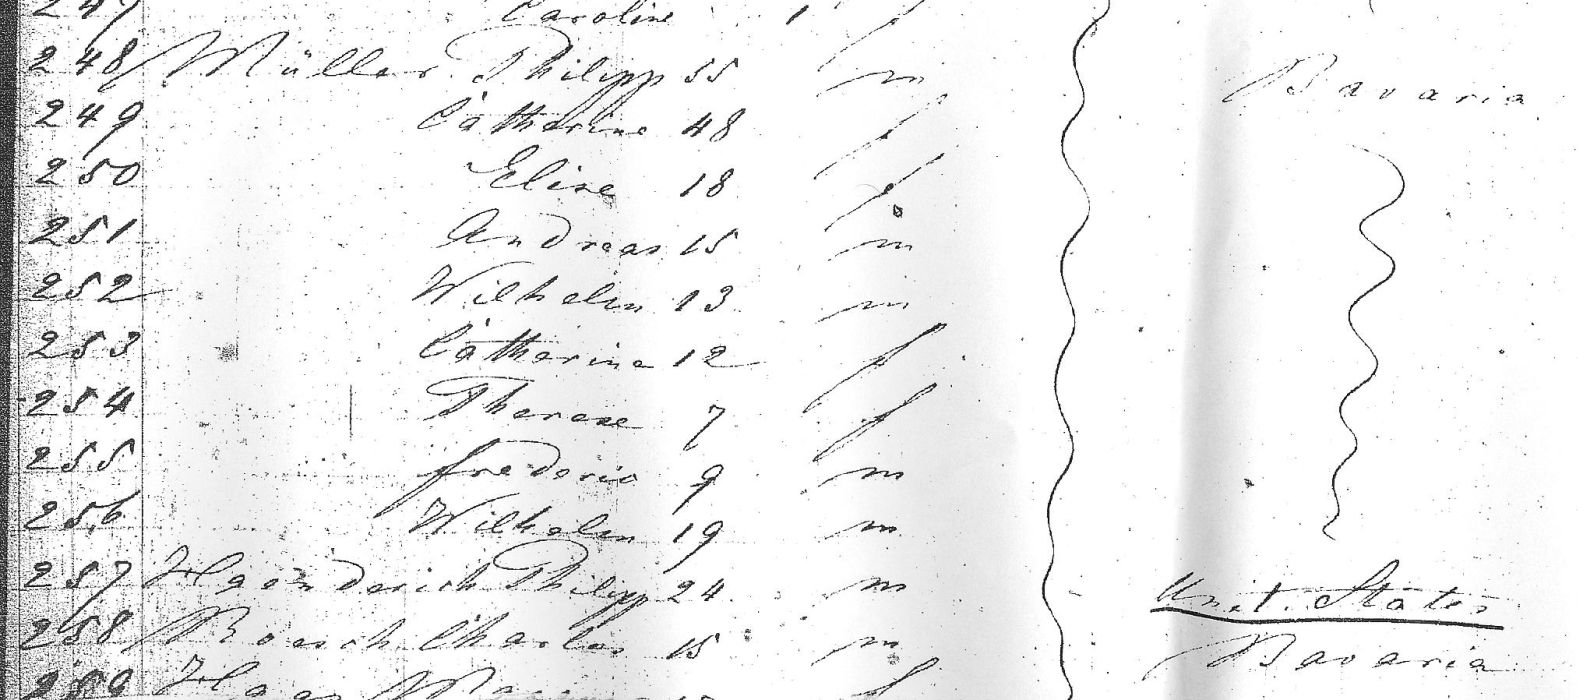 247 Caroline 1 f
248 Müller Philipp 55 m Bavaria
249 Catharine 48 f
250 Elise 18 f
251 Andreas 15 m
252 Wilhelm 13 m
253 Catharine 12 f
254 Therese 7 f
255 frederic 9 m
256 Wilhelm 19 m
257 Philipp 24 m Unit. States
258 Charles 15 m Bavaria
259 Haas f